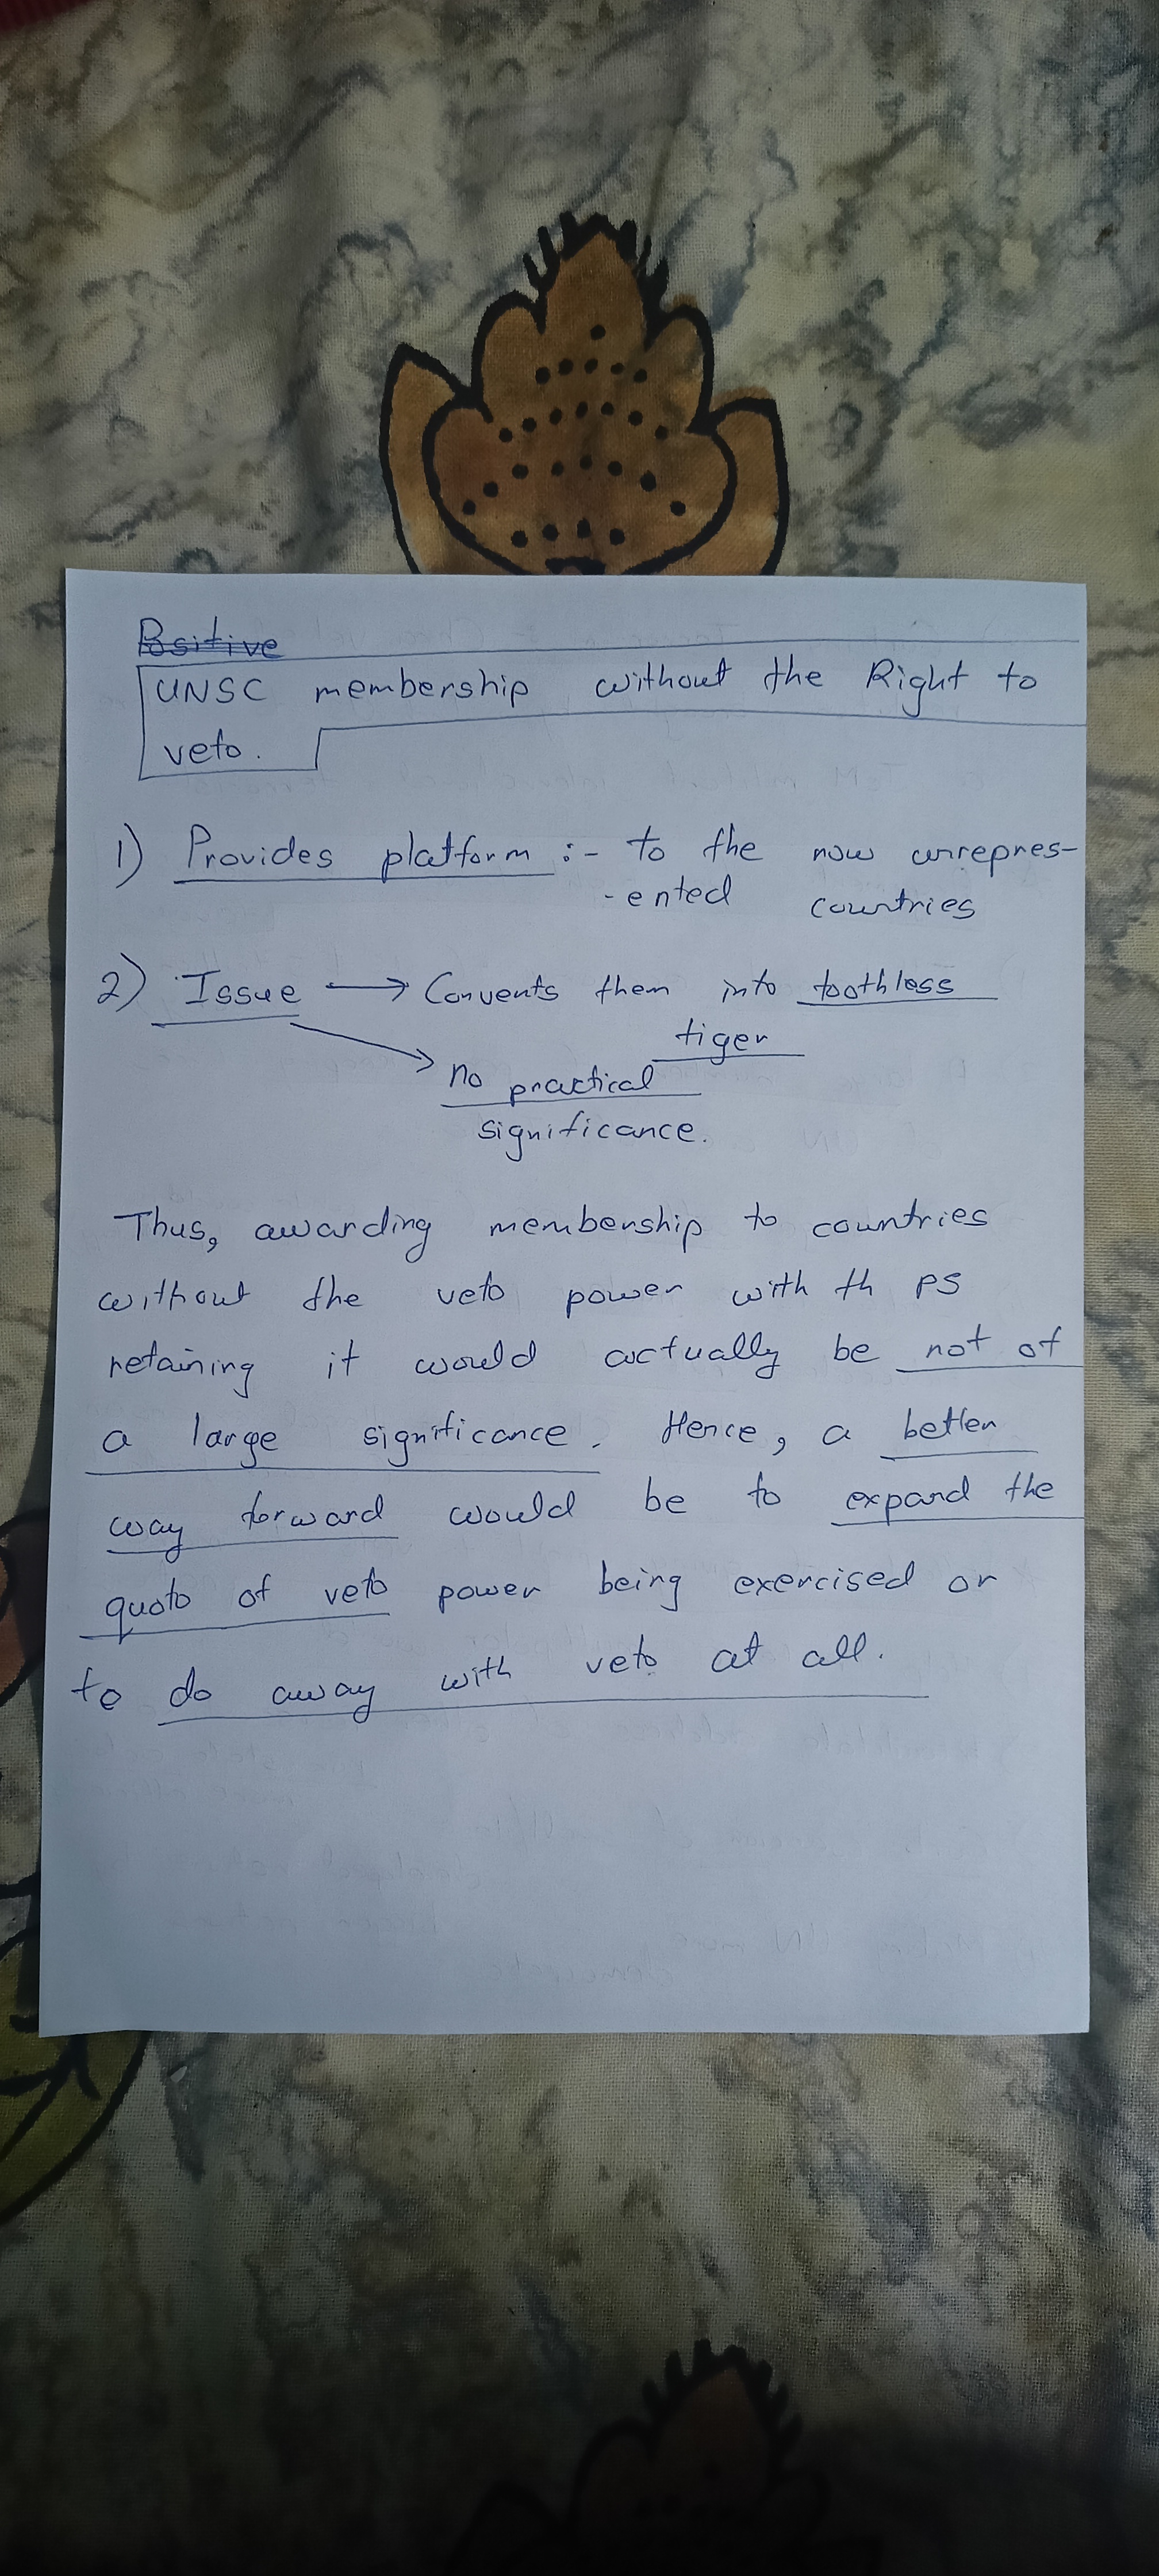 Positive
UNSC membership without the Right to
veto.
1) Provides platform :- to the now unrepres-
-ented countries
2) Issue → Converts them into toothless
tiger
no practical
significance.
Thus, awarding membership to countries
without the veto power with th P5
retaining it would actually be not of
a large significance. Hence, a better
way forward would be to expand the
quoto of veto power being exercised or
to do away with veto at all.